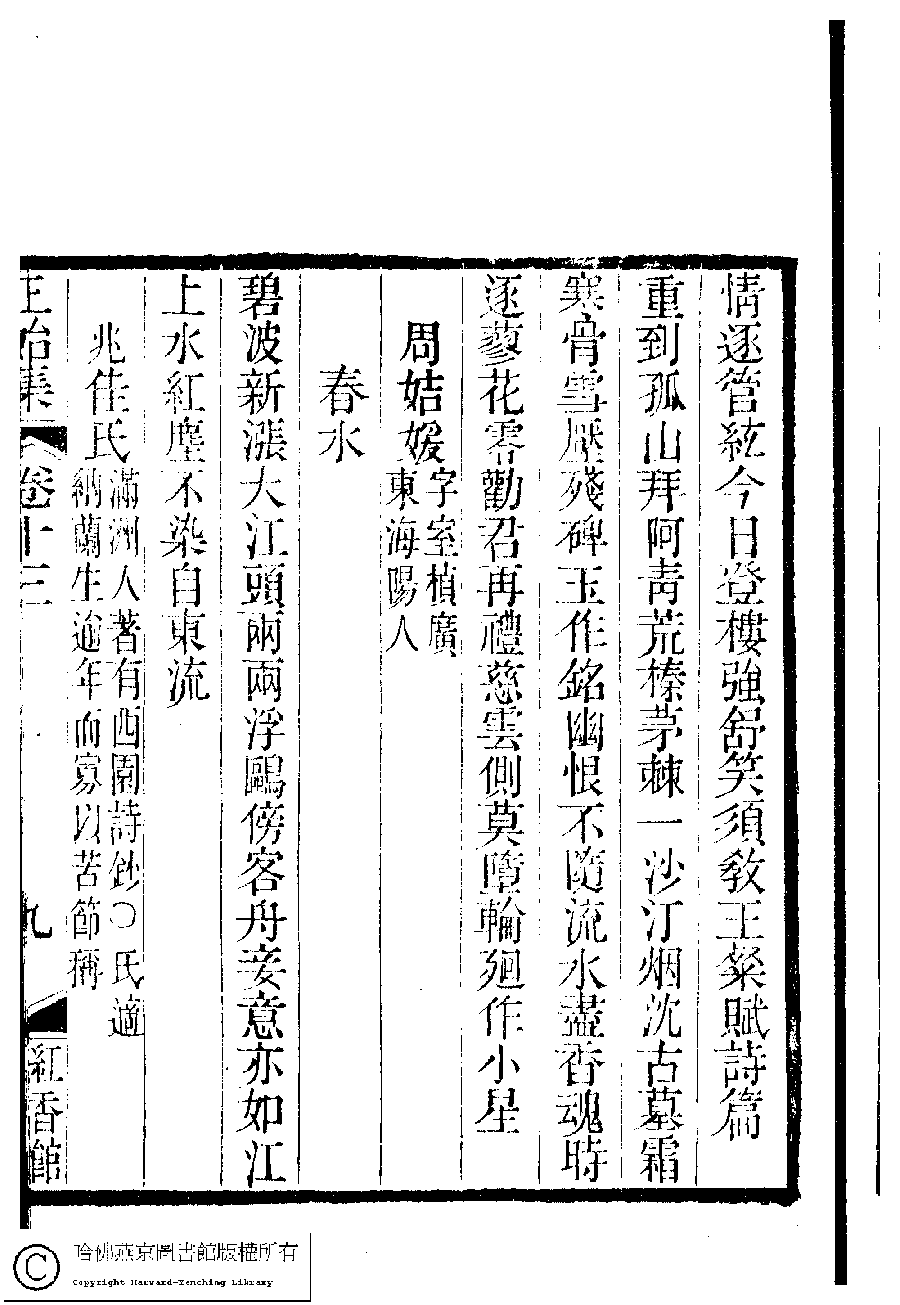 情逐管絃今日登樓強舒笑須教王粲賦詩篇
重到孤山拜阿青荒榛茅棘一沙汀烟沈古墓霜
寒骨雪壓殘碑玉作銘幽恨不隨流水盡香魂時
逐蓼花零勸君再禮慈雲側莫墮輪廻作小星
周姞媛字室楨廣
東海陽人
春水
碧波新漲大江頭兩兩浮鷗傍客舟妾意亦如江
上水紅塵不染自東流
兆佳氏滿洲人著有西園詩鈔〇氏適
納蘭生逾年而寡以苦節稱
正始集
卷十三
九
紅香館
哈佛燕京圖書館版權所有
Copyright Harvard-Yenching Library